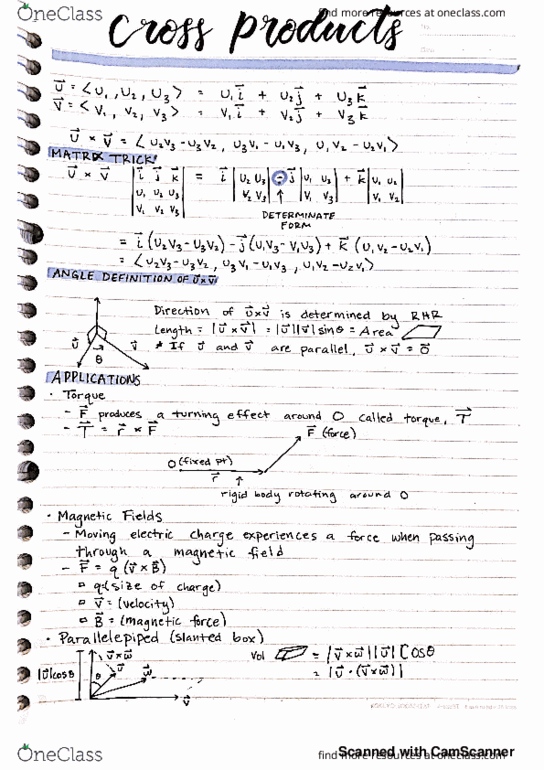 OneClass
find more resources at oneclass.com
Cross Products
u⃗ = <u₁, u₂, u₃> = u₁i⃗ + u₂j⃗ + u₃k⃗
v⃗ = <v₁, v₂, v₃> = v₁i⃗ + v₂j⃗ + v₃k⃗
u⃗ × v⃗ = <u₂v₃-u₃v₂, u₃v₁-u₁v₃, u₁v₂-u₂v₁>
MATRIX TRICK!
u⃗ × v⃗ |i⃗ j⃗ k⃗| = i⃗ |u₂ u₃| - j⃗ |u₁ u₃| + k⃗ |u₁ u₂|
|u₁ u₂ u₃| |v₂ v₃| |v₁ v₃| |v₁ v₂|
|v₁ v₂ v₃|
DETERMINATE
FORM
= i⃗(u₂v₃-u₃v₂) - j⃗(u₁v₃-v₁u₃) + k⃗(u₁v₂-u₂v₁)
= <u₂v₃-u₃v₂, u₃v₁-u₁v₃, u₁v₂-u₂v₁>
ANGLE DEFINITION OF u⃗×v⃗
Direction of u⃗×v⃗ is determined by RHR
Length = |u⃗×v⃗| = |u⃗||v⃗|sinθ = Area
* If u⃗ and v⃗ are parallel, u⃗×v⃗ = 0⃗
u⃗ θ
APPLICATIONS
· Torque
- F⃗ produces a turning effect around O called torque, T⃗
- T⃗ = r⃗ × F⃗
F⃗ (force)
O (fixed pt)
r⃗
rigid body rotating around O
· Magnetic Fields
- Moving electric charge experiences a force when passing
through a magnetic field
- F⃗ = q (v⃗×B⃗)
▫ q (size of charge)
▫ v⃗ = (velocity)
▫ B⃗ = (magnetic force)
· Parallelepiped (slanted box)
|u⃗|cosθ v⃗×w⃗ θ u⃗ w⃗ v⃗
Vol = |v⃗×w⃗||u⃗| cosθ
= |u⃗·(v⃗×w⃗)|
OneClass
find more resources at oneclass.com
Scanned with CamScanner